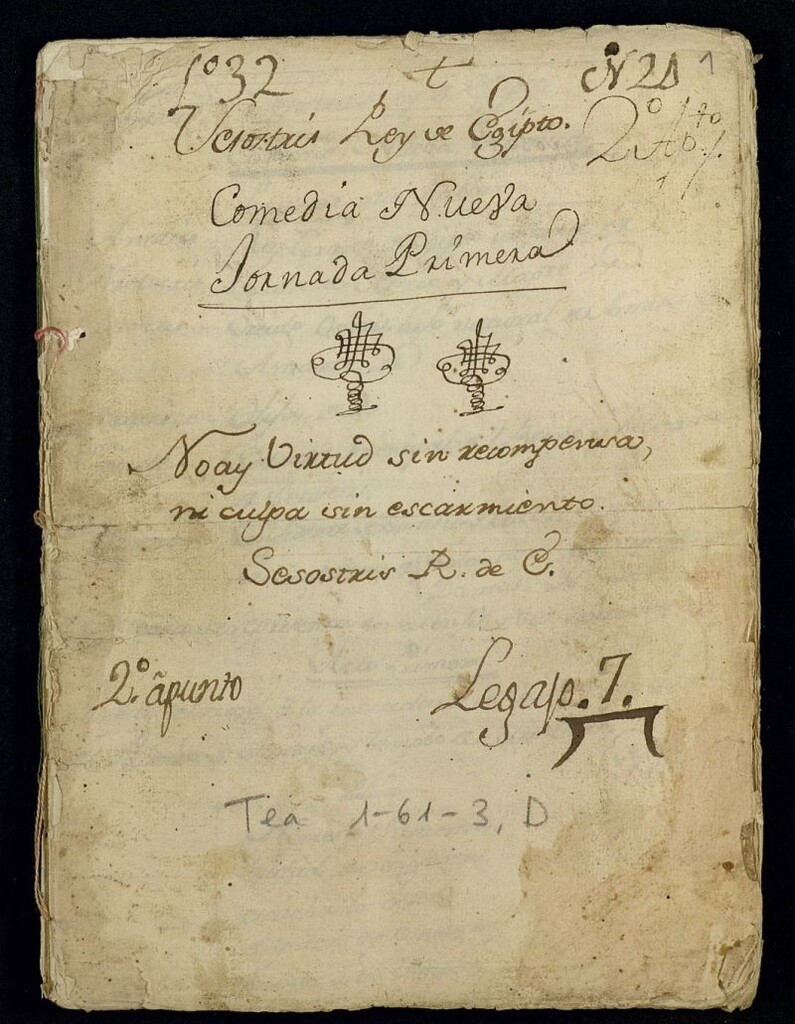 1º 32 † N 21 1
Vesostris Rey de Egipto. 2º
Comedia Nueva
Jornada Primera
No ay Virtud sin recompensa,
ni culpa sin escarmiento.
Sesostris R. de E.
2º apunto
Legajo. 7.
Tea 1-61-3, D